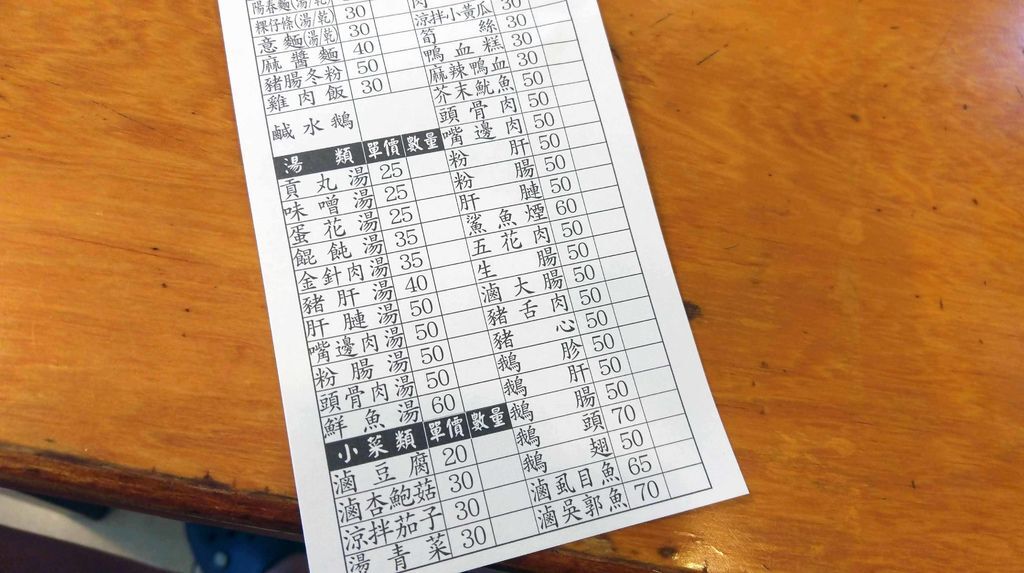 陽春麵(湯/乾)
粿仔條(湯/乾) 30
意麵(湯/乾) 30
麻醬麵 40
豬腸冬粉 50
雞肉飯 30
鹹水鵝
湯類 單價 數量
貢丸湯 25
味噌湯 25
蛋花湯 25
餛飩湯 35
金針肉湯 35
豬肝湯 40
肝腱湯 50
嘴邊肉湯 50
粉腸湯 50
頭骨肉湯 50
鮮魚湯 60
小菜類 單價 數量
滷豆腐 20
滷杏鮑菇 30
涼拌茄子 30
湯青菜 30
肉
涼拌小黃瓜 30
筍絲 30
鴨血糕 30
麻辣鴨血 30
芥末魷魚 50
頭骨肉 50
嘴邊肉 50
粉肝 50
粉腸 50
肝腱 50
鯊魚煙 60
五花肉 50
生腸 50
滷大腸 50
豬舌肉 50
豬心 50
鵝胗 50
鵝肝 50
鵝腸 50
鵝頭 70
鵝翅 50
滷虱目魚 65
滷吳郭魚 70